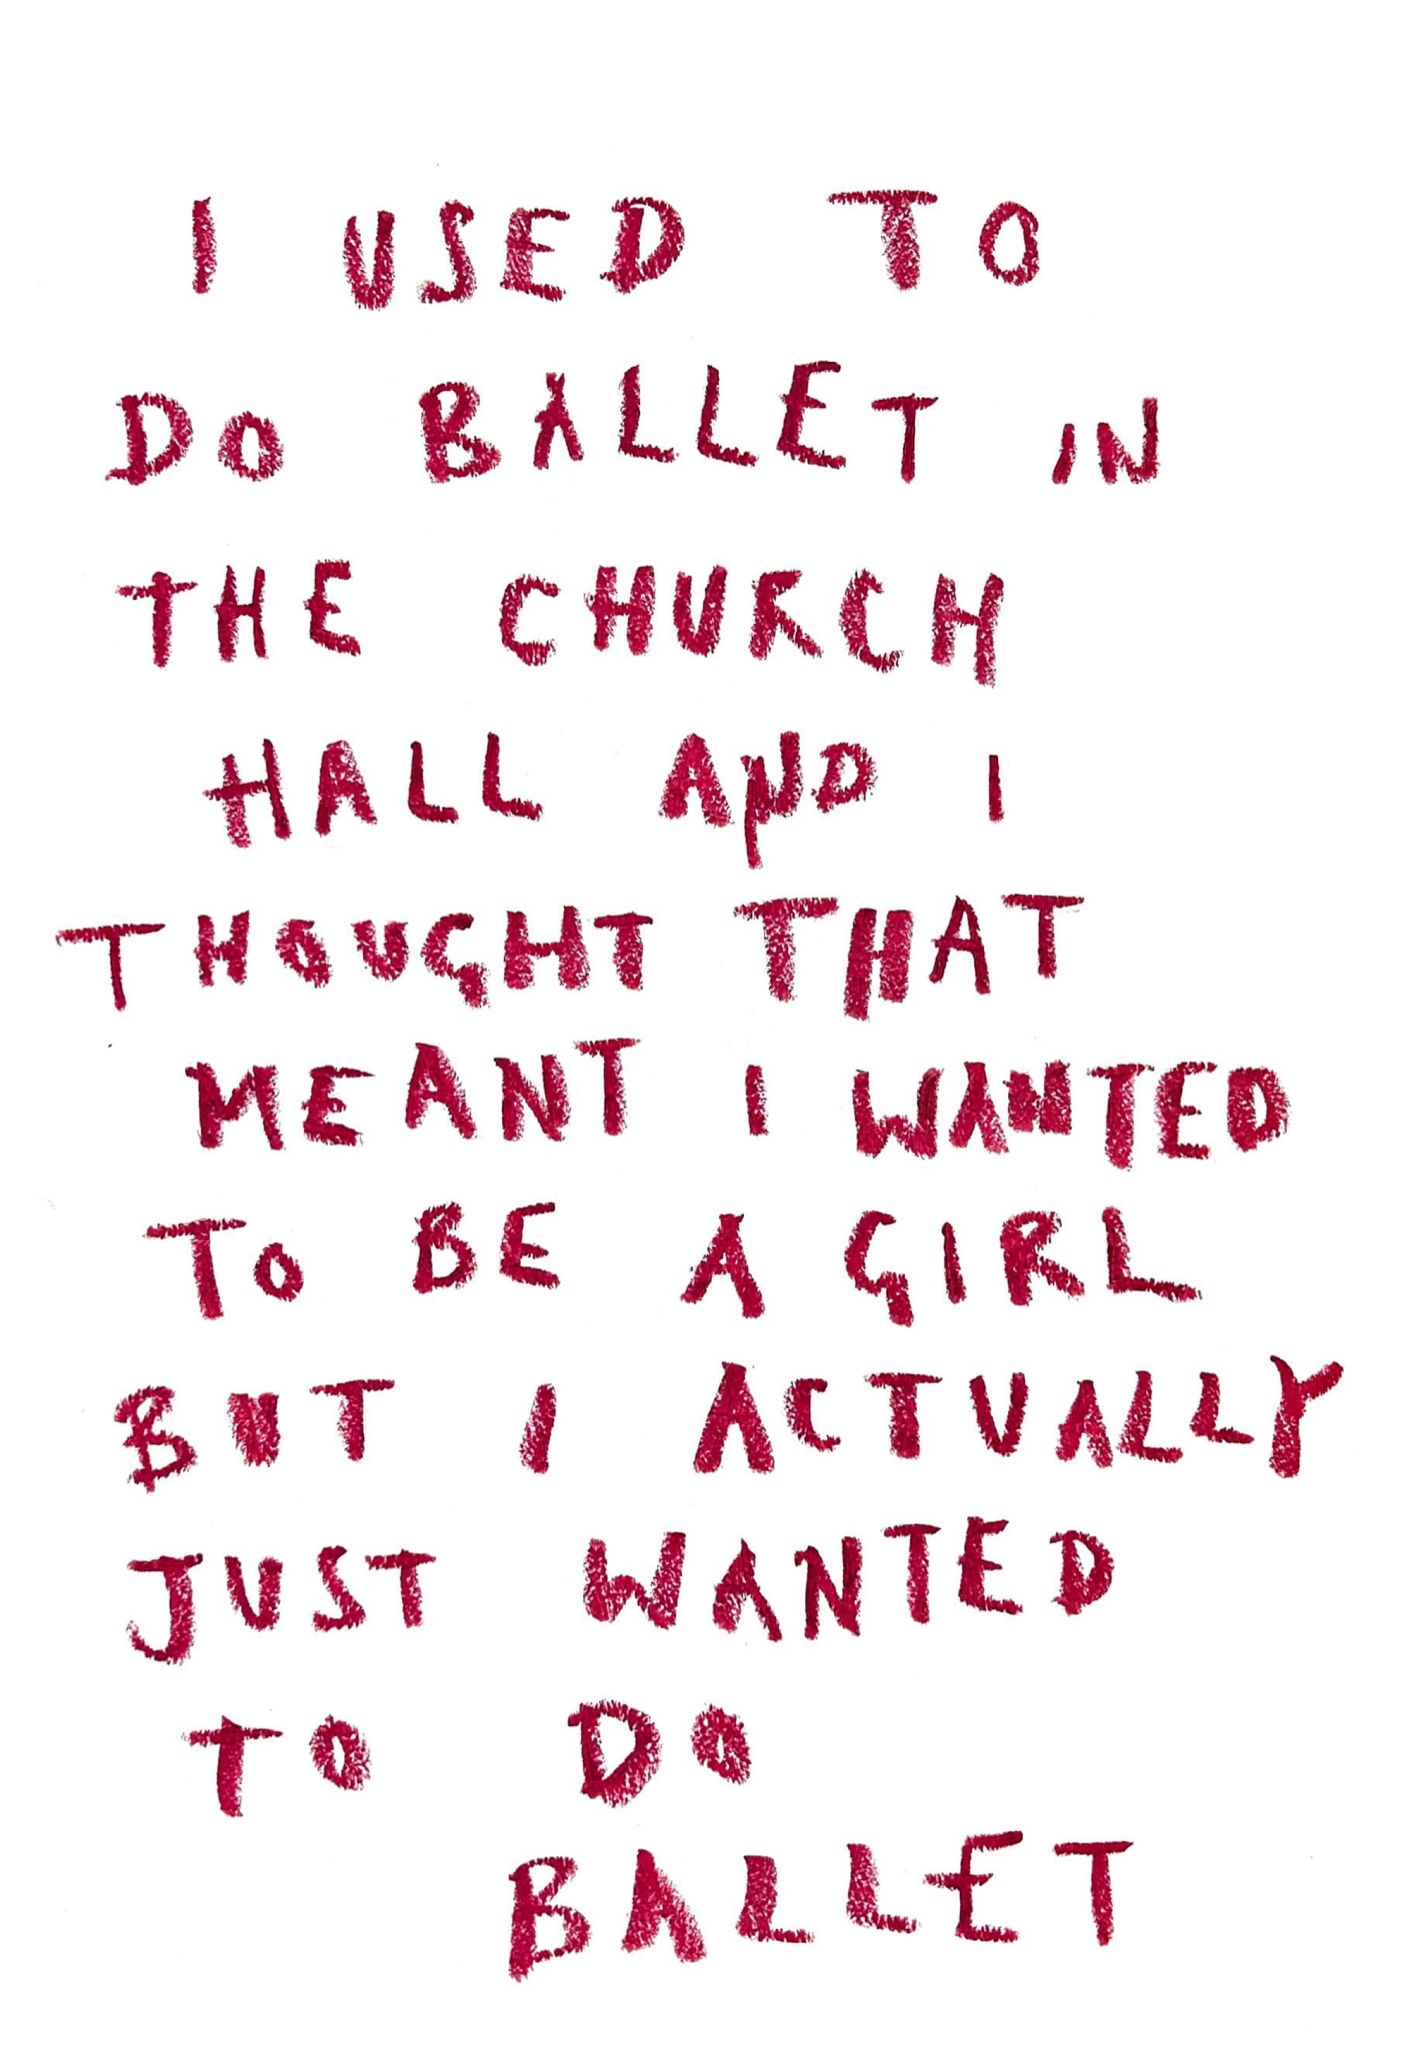 I USED TO
DO BALLET IN
THE CHURCH
HALL AND I
THOUGHT THAT
MEANT I WANTED
TO BE A GIRL
BUT I ACTUALLY
JUST WANTED
TO DO
BALLET